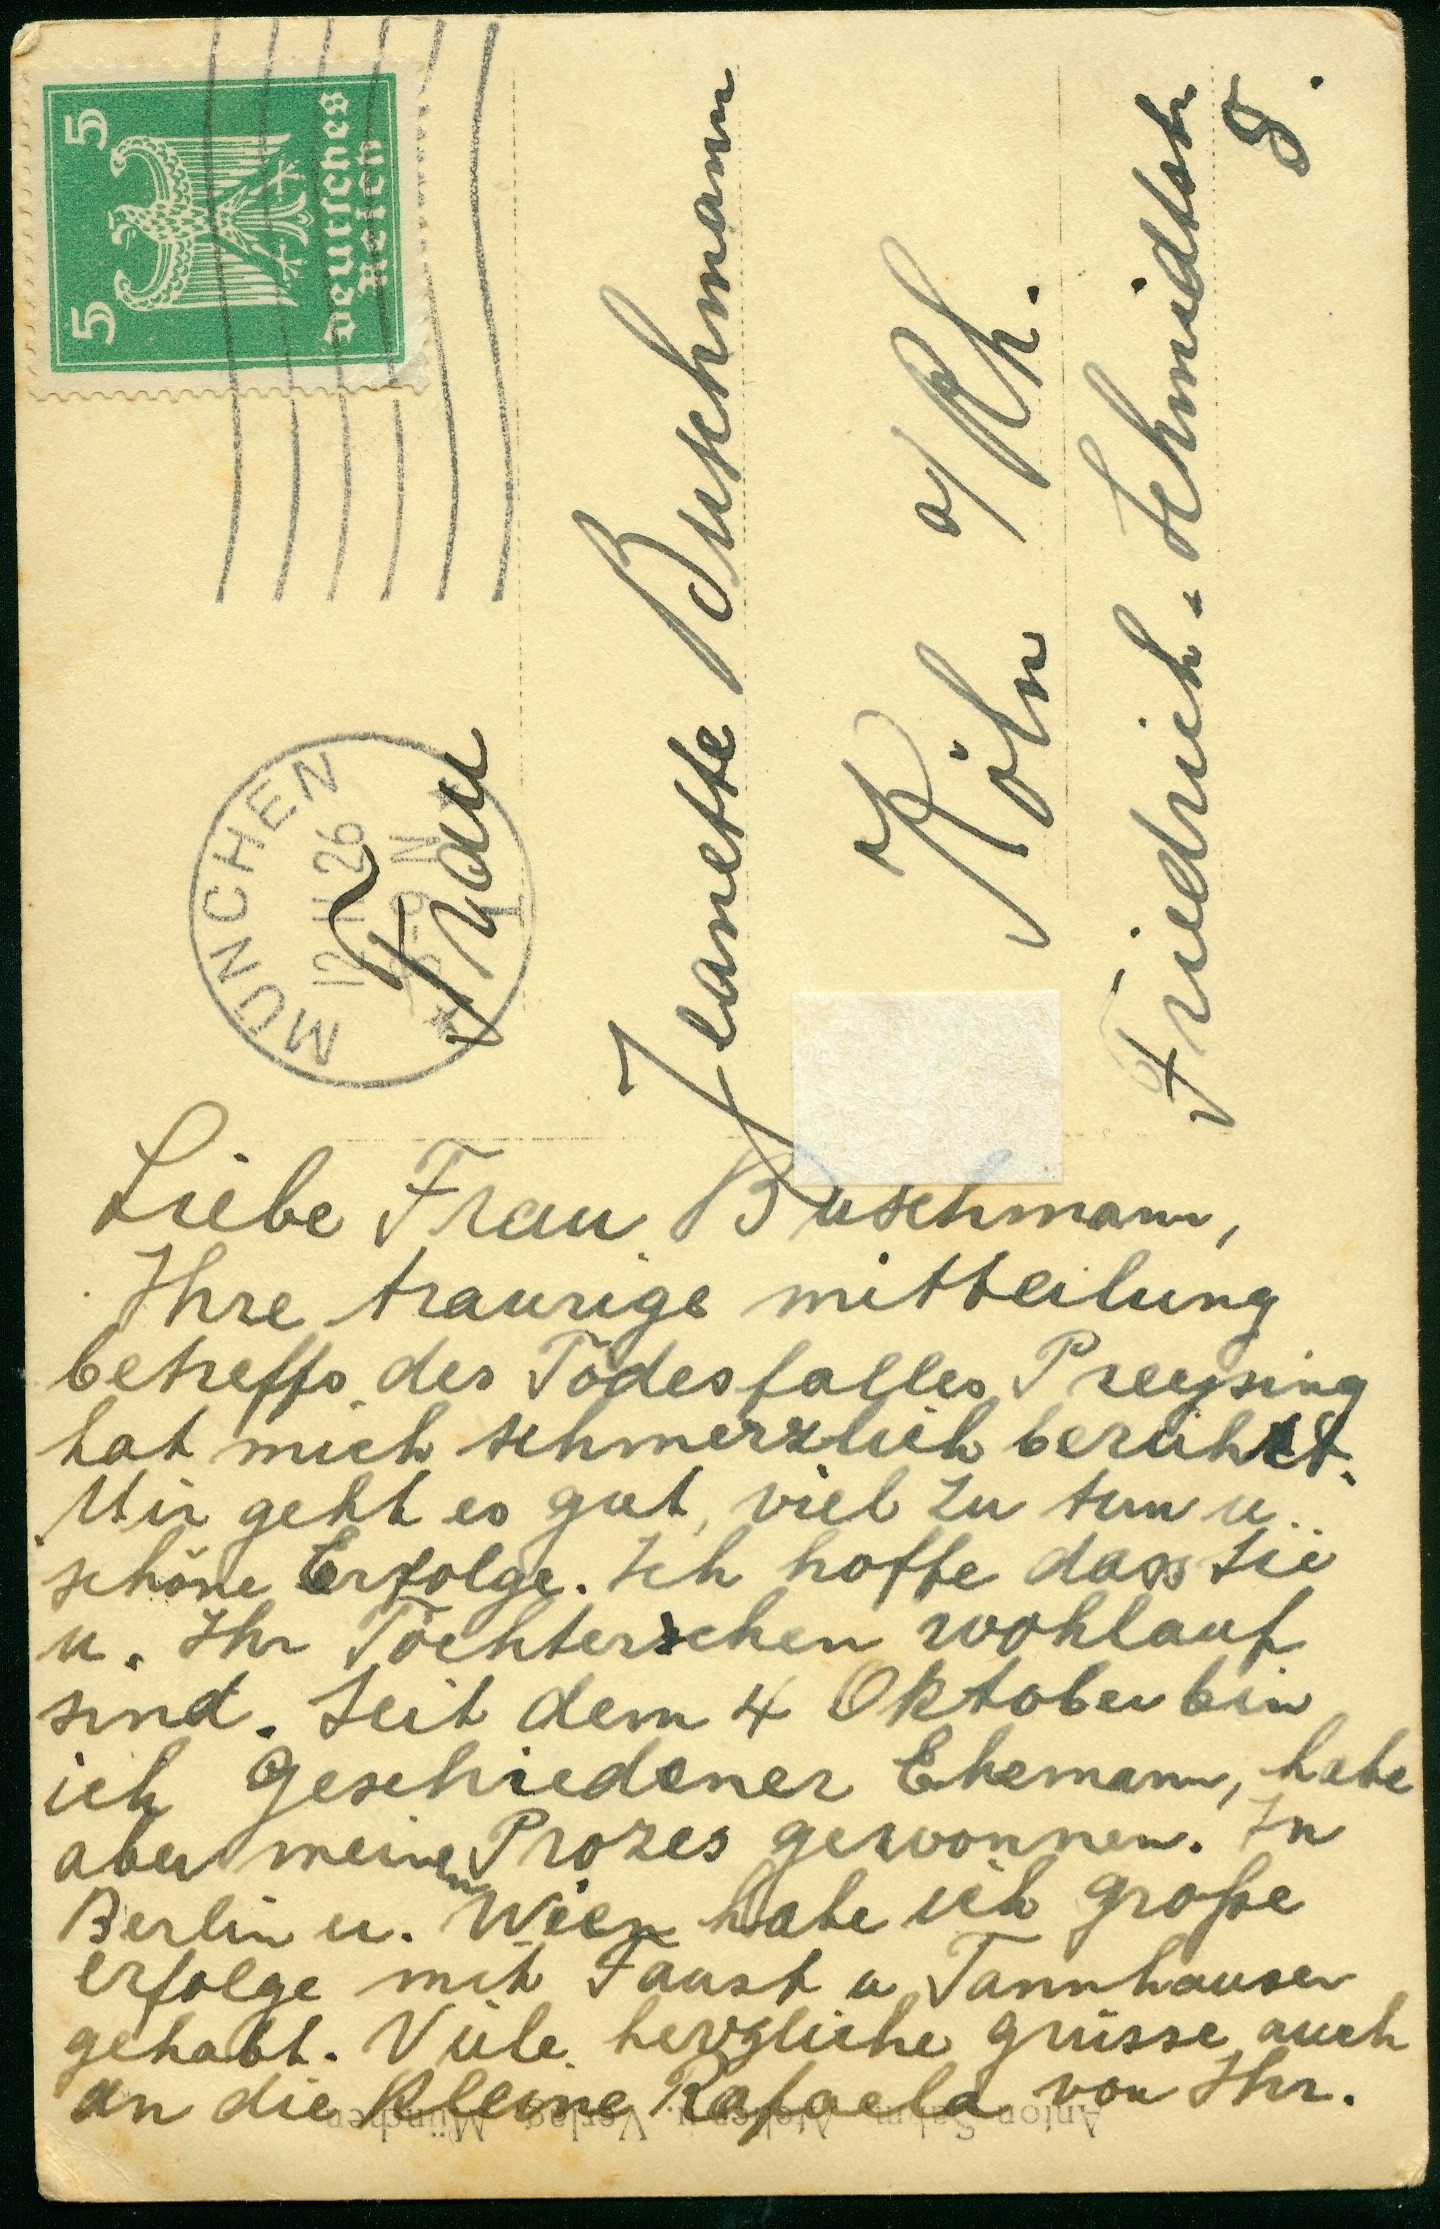 5 5
Deutsches
Reich
MÜNCHEN
12 11 26
8-9 N
1
Frau
Jeanette Buschmann
Köln a/Rh.
Friedrich-Schmidtstr
8.
Liebe Frau Buschmann,
Ihre traurige mitteilung
betreffs des Todesfalles Preysing
hat mich schmerzlich berührt.
Mir geht es gut, viel zu tun u.
schöne Erfolge. Ich hoffe dass Sie
u. Ihr Töchterchen wohlauf
sind. Seit dem 4 Oktober bin
ich geschiedener Ehemann, habe
aber meinen Prozes gewonnen. In
Berlin u. Wien habe ich große
erfolge mit Faust u Tannhauser
gehabt. Viele herzliche grüsse auch
an die Kleine Rafaela von Ihr.
Anton Sahm, Atelier u. Verlag, München